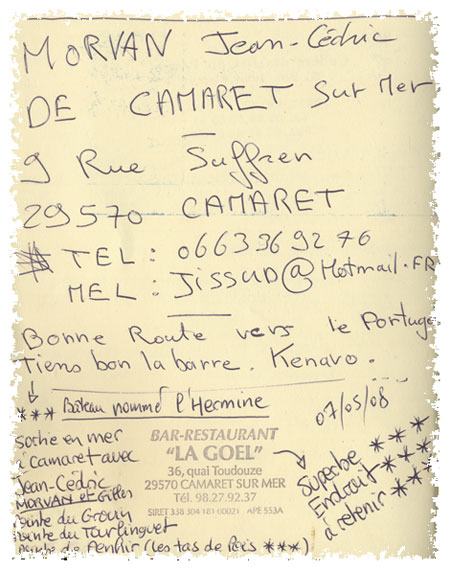 MORVAN Jean-Cédric
DE CAMARET Sur Mer
9 Rue Suffren
29570 CAMARET
# TEL : 0663369276
MEL : JISSUD@Hotmail.FR
Bonne Route vers le Portugal
Tiens bon la barre. Kenavo.
*** Bâteau nommé l'Hermine
07/05/08
sortie en mer
à Camaret avec
Jean-Cédric
MORVAN et Gilles
Pointe du Grouin
Pointe du Tarlinguet
Pointe de Penhir (Les tas de Pois ***)
BAR-RESTAURANT
"LA GOEL"
36, quai Toudouze
29570 CAMARET SUR MER
Tél. 98.27.92.37
SIRET 338 304 181 00021 APE 553A
Superbe ***
Endroit ***
à retenir ***